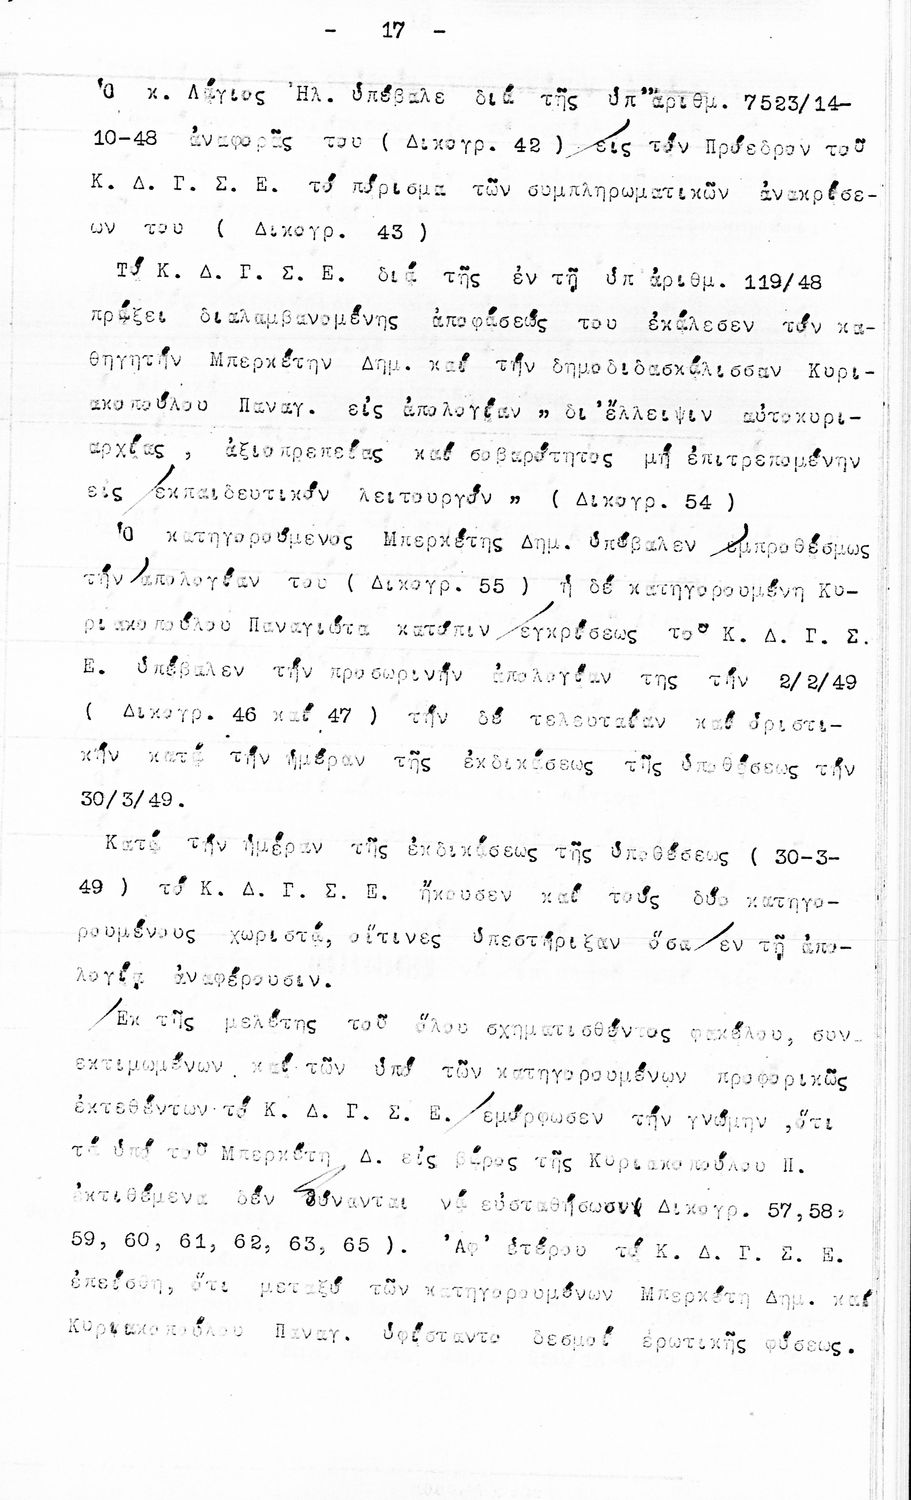 - 17 -
Ὁ κ. Λάγιος Ἠλ. ὑπέβαλε διά τῆς ὑπ'ἀριθμ. 7523/14-
10-48 ἀναφορᾶς του ( Δικογρ. 42 ) εἰς τόν Πρόεδρον τοῦ
Κ. Δ. Γ. Σ. Ε. τό πόρισμα τῶν συμπληρωματικῶν ἀνακρίσε-
ων του ( Δικογρ. 43 )
Τό Κ. Δ. Γ. Σ. Ε. διά τῆς ἐν τῇ ὑπ ἀριθμ. 119/48
πράξει διαλαμβανομένης ἀποφάσεώς του ἐκάλεσεν τόν κα-
θηγητήν Μπερκέτην Δημ. καί τήν δημοδιδασκάλισσαν Κυρι-
ακοπούλου Παναγ. εἰς ἀπολογίαν " δι'ἔλλειψιν αὐτοκυρι-
αρχίας , ἀξιοπρεπείας καί σοβαρότητος μή ἐπιτρεπομένην
εἰς ἐκπαιδευτικόν λειτουργόν " ( Δικογρ. 54 )
Ὁ κατηγορούμενος Μπερκέτης Δημ. ὑπέβαλεν ἐμπροθέσμως
τήν ἀπολογίαν του ( Δικογρ. 55 ) ἡ δέ κατηγορουμένη Κυ-
ριακοπούλου Παναγιώτα κατόπιν ἐγκρίσεως τοῦ Κ. Δ. Γ. Σ.
Ε. ὑπέβαλεν τήν προσωρινήν ἀπολογίαν της τήν 2/2/49
( Δικογρ. 46 καί 47 ) τήν δέ τελευταίαν καί ὁριστι-
κήν κατά τήν ἡμέραν τῆς ἐκδικάσεως τῆς ὑποθέσεως τήν
30/3/49.
Κατά τήν ἡμέραν τῆς ἐκδικάσεως τῆς ὑποθέσεως ( 30-3-
49 ) τό Κ. Δ. Γ. Σ. Ε. ἤκουσεν καί τούς δύο κατηγο-
ρουμένους χωριστά, οἵτινες ὑπεστήριξαν ὅσα ἐν τῇ ἀπο-
λογίᾳ ἀναφέρουσιν.
Ἐκ τῆς μελέτης τοῦ ὅλου σχηματισθέντος φακέλου, συν-
εκτιμωμένων καί τῶν ὑπό τῶν κατηγορουμένων προφορικῶς
ἐκτεθέντων τό Κ. Δ. Γ. Σ. Ε. ἐμόρφωσεν τήν γνώμην ,ὅτι
τά ὑπό τοῦ Μπερκέτη Δ. εἰς βάρος τῆς Κυριακοπούλου Π.
ἐκτιθέμενα δέν δύνανται νά εὐσταθήσωσιν( Δικογρ. 57,58,
59, 60, 61, 62, 63, 65 ). 'Αφ' ἑτέρου τό Κ. Δ. Γ. Σ. Ε.
ἐπείσθη, ὅτι μεταξύ τῶν κατηγορουμένων Μπερκέτη Δημ. καί
Κυριακοπούλου Παναγ. ὑφίσταντο δεσμοί ἐρωτικῆς φύσεως.